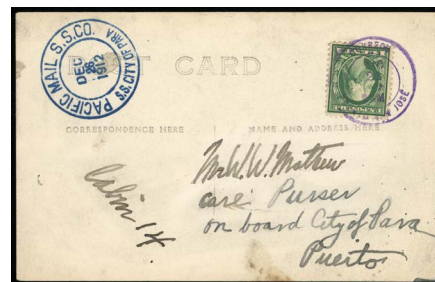 PACIFIC MAIL S.S.CO.
S.S. CITY OF PARA
DEC
26
1912
POST CARD
CORRESPONDENCE HERE
NAME AND ADDRESS HERE
JOSÉ
Mr W. W. Mathew
care Purser
on board City of Para
Puerto
Cabin 14.